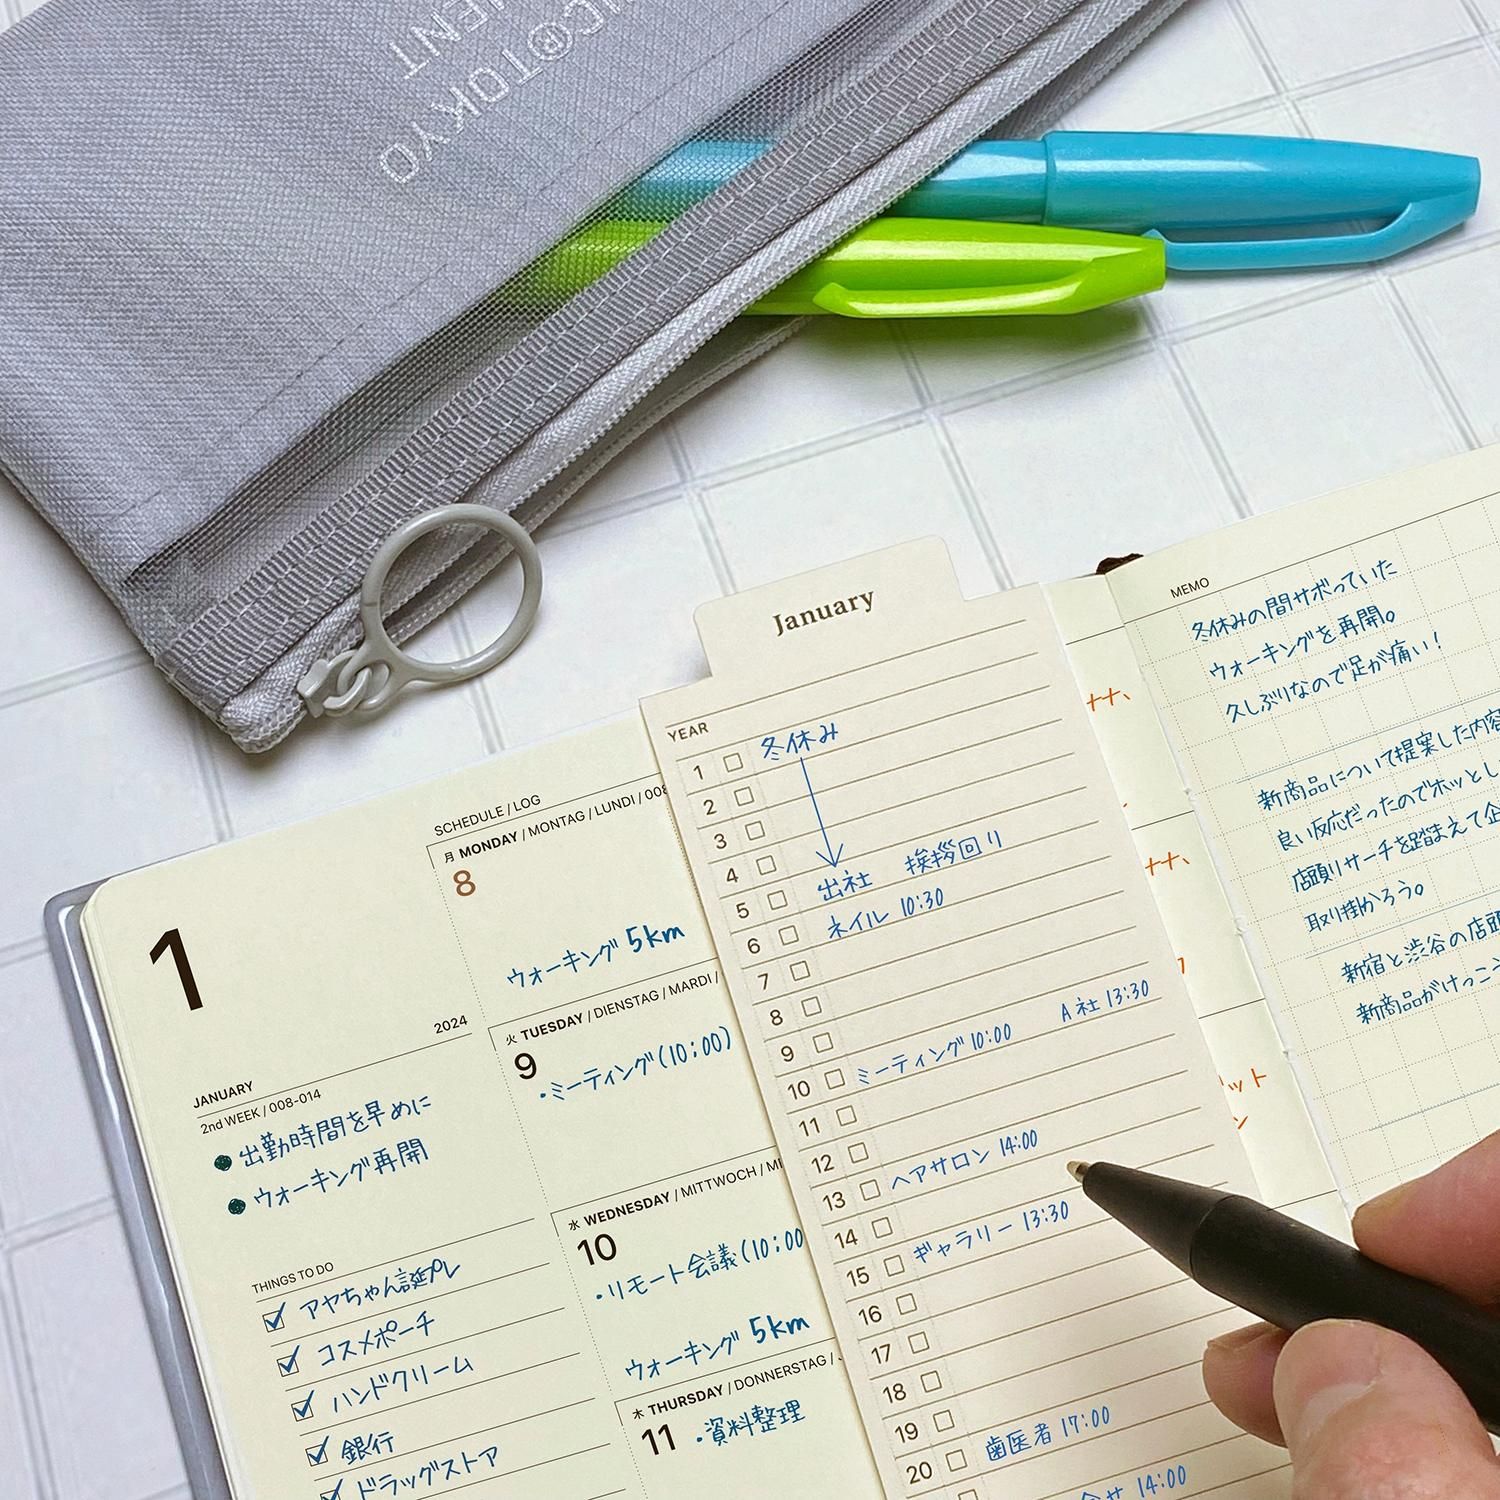 TOKYO
MENT
SCHEDULE / LOG
月 MONDAY / MONTAG / LUNDI / 008
8
ウォーキング 5km
火 TUESDAY / DIENSTAG / MARDI /
9
・ミーティング(10:00)
水 WEDNESDAY / MITTWOCH /
10
・リモート会議(10:00
ウォーキング 5km
木 THURSDAY / DONNERSTAG /
11
・資料整理
1
2024
JANUARY
2nd WEEK / 008-014
● 出勤時間を早めに
● ウォーキング再開
THINGS TO DO
☑ アヤちゃん誕プレ
☑ コスメポーチ
☑ ハンドクリーム
☑ 銀行
☑ ドラッグストア
January
YEAR
1 □ 冬休み
2 □
3 □
4 □
5 □ 出社 挨拶回り
6 □ ネイル 10:30
7 □
8 □
9 □
10 □ ミーティング 10:00 A社 13:30
11 □
12 □
13 □ ヘアサロン 14:00
14 □
15 □ ギャラリー 13:30
16 □
17 □
18 □
19 □
20 □ 歯医者 17:00
14:00
MEMO
冬休みの間サボっていた
ウォーキングを再開。
久しぶりなので足が痛い！
新商品について提案した内容
良い反応だったのでホッとし
店頭リサーチを踏まえて企
取り掛かろう。
新宿と渋谷の店頭
新商品がけっこう